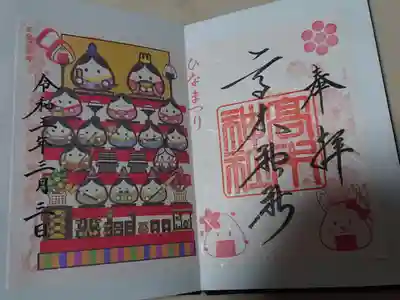 奉拝
高木神社
高木
神社
ひなまつり
令和二年三月三日